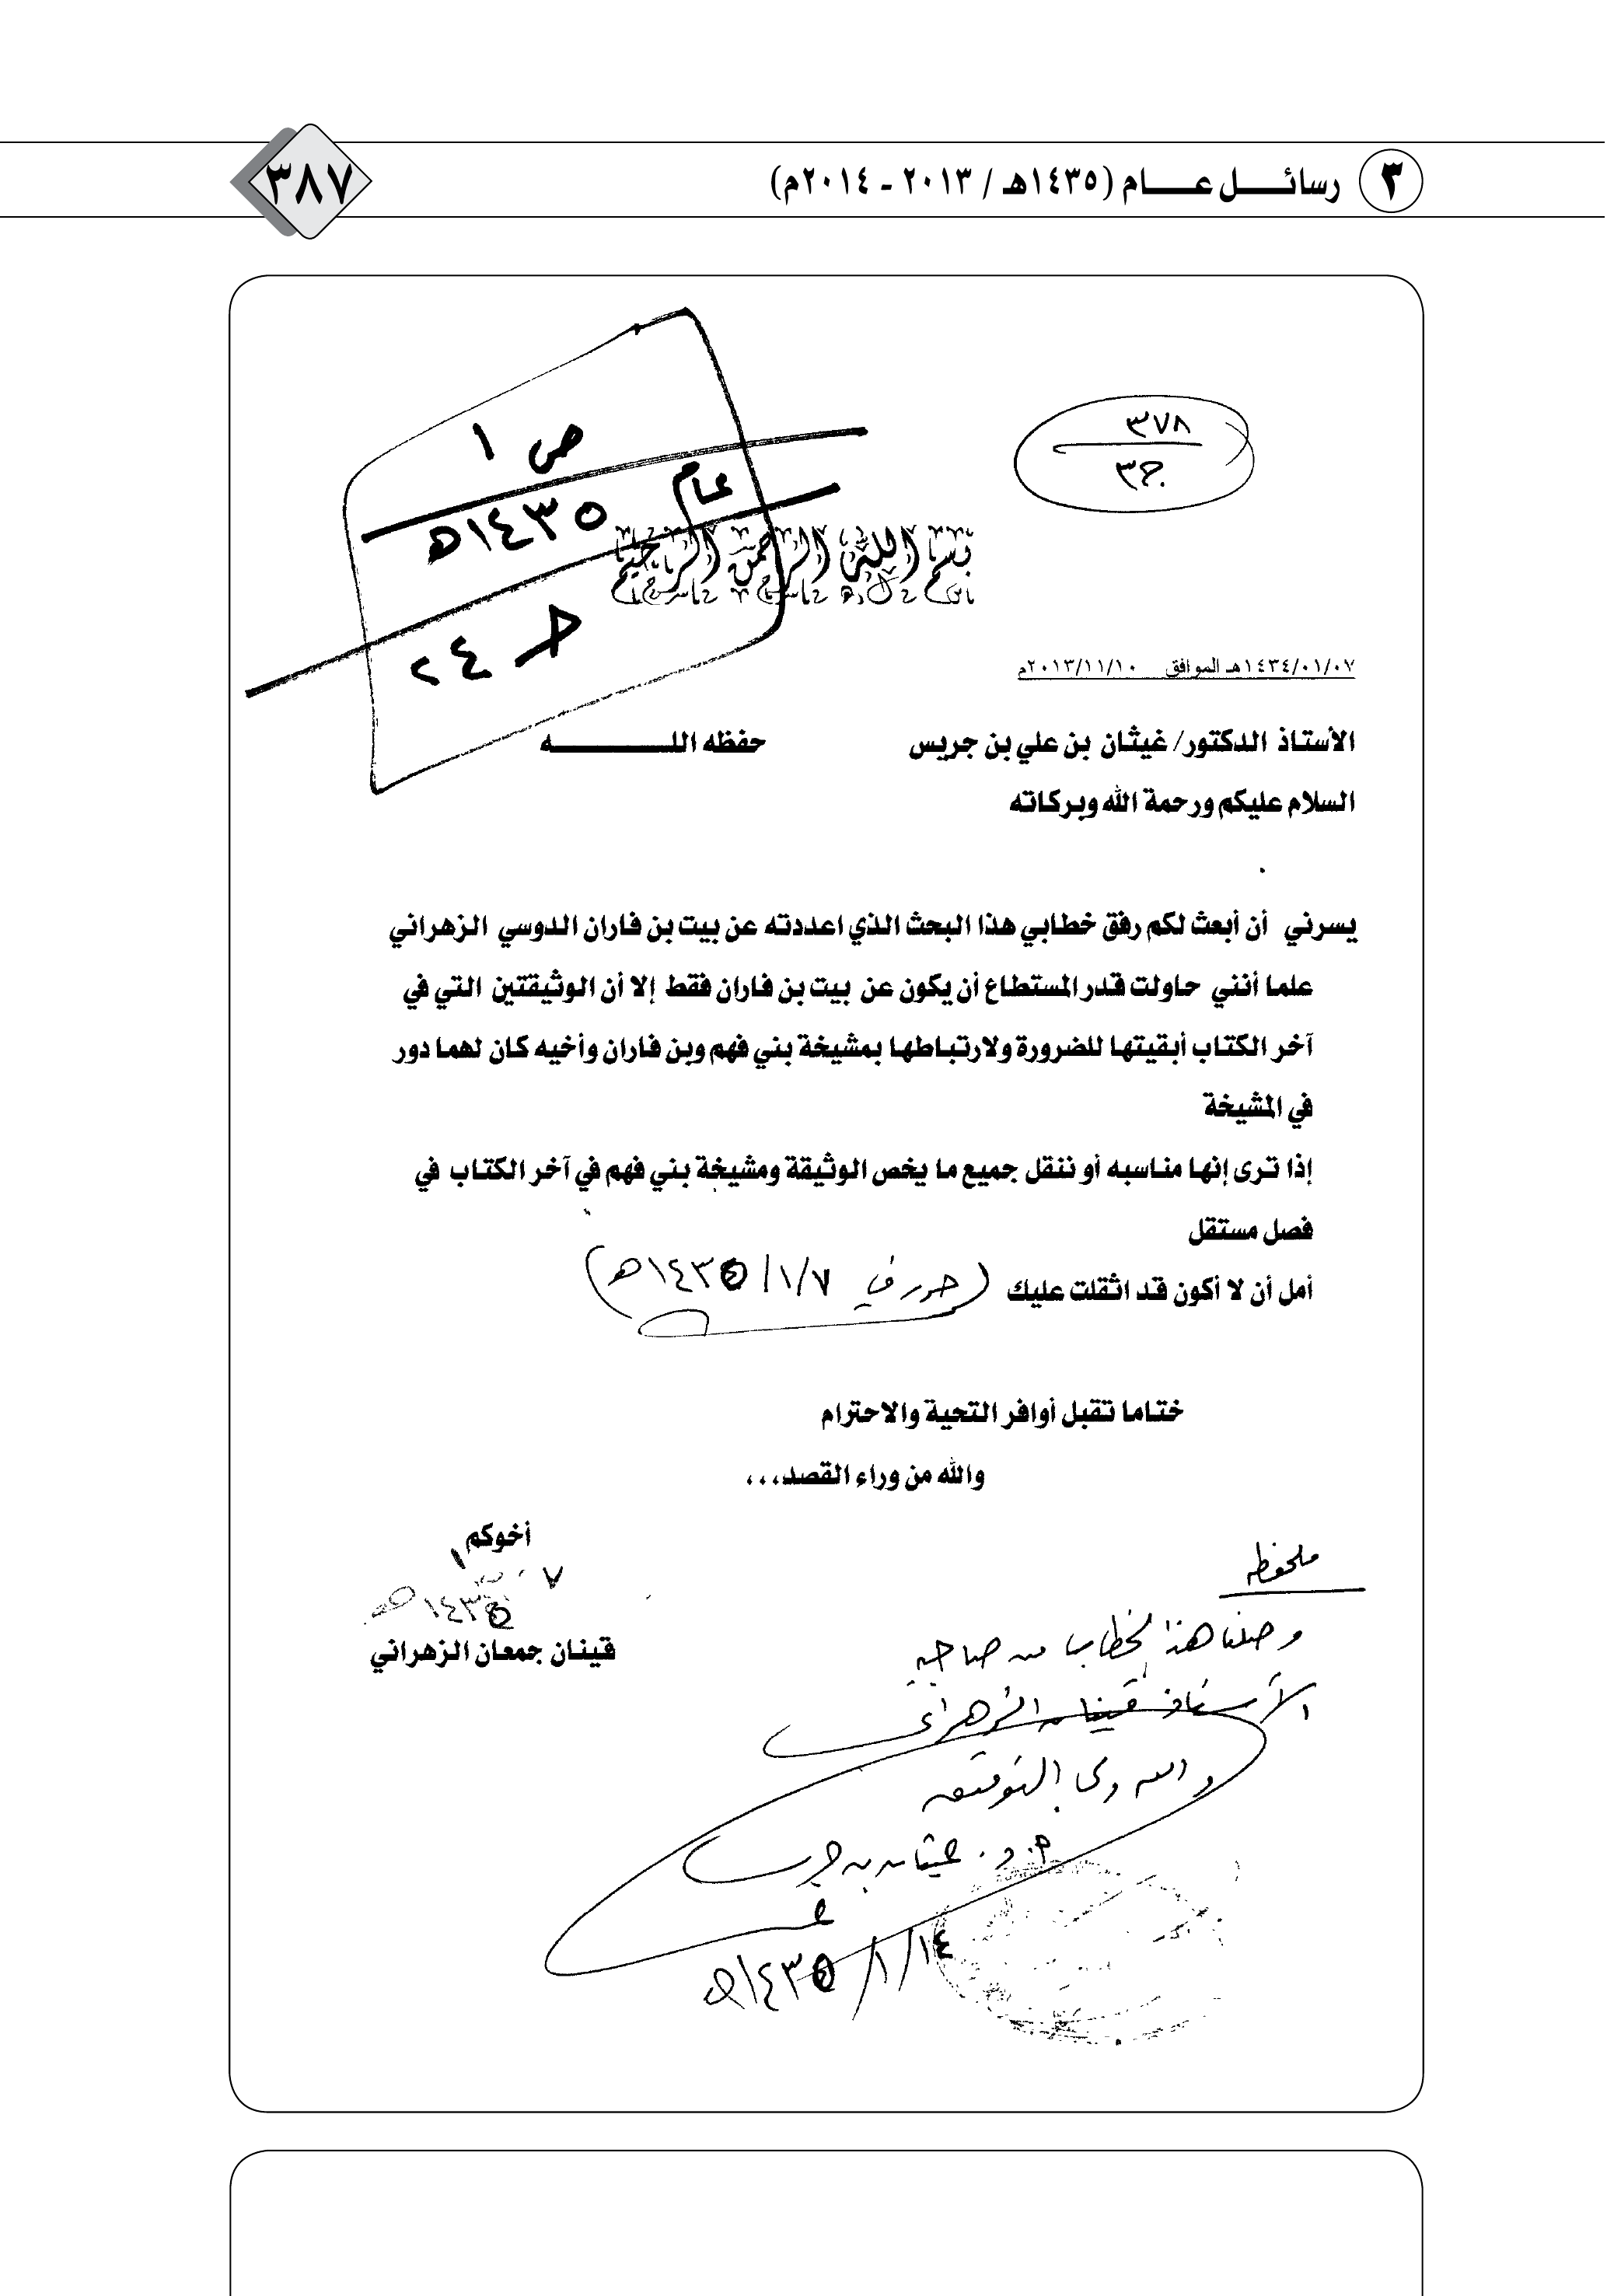 ٣ رسائـــل عـــام (١٤٣٥هـ / ٢٠١٣ - ٢٠١٤م)
٣٨٧
٣٧٨
ج٣
ص ١
عام ١٤٣٥هـ
حـ ٢٤
بسم الله الرحمن الرحيم
١٤٣٤/٠١/٠٧هـ الموافق ٢٠١٣/١١/١٠م
الأستاذ الدكتور/ غيثان بن علي بن جريس حفظه اللـــــــــه
السلام عليكم ورحمة الله وبركاته
يسرني أن أبعث لكم رفق خطابي هذا البحث الذي اعددته عن بيت بن فاران الدوسي الزهراني
علما أنني حاولت قدر المستطاع أن يكون عن بيت بن فاران فقط إلا أن الوثيقتين التي في
آخر الكتاب أبقيتها للضرورة ولارتباطها بمشيخة بني فهم وبن فاران وأخيه كان لهما دور
في المشيخة
إذا ترى إنها مناسبه أو ننقل جميع ما يخص الوثيقة ومشيخة بني فهم في آخر الكتاب في
فصل مستقل
أمل أن لا أكون قد اثقلت عليك (حرر في ١/٧/١٤٣٥هـ)
ختاما تقبل أوافر التحية والاحترام
والله من وراء القصد،،،
أخوكم
١٤٣٥هـ
قينان جمعان الزهراني
ملحوظه
وصلنا هذا الخطاب من صاحبه
الأستاذ قينان الزهراني
والله ولي التوفيق
أ.د. غيثان بن جريس
١٤/١/١٤٣٥هـ